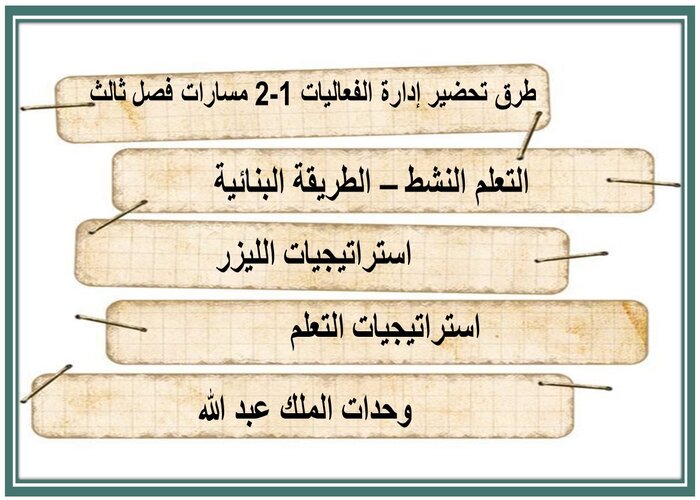 طرق تحضير إدارة الفعاليات 1-2 مسارات فصل ثالث
التعلم النشط – الطريقة البنائية
استراتيجيات الليزر
استراتيجيات التعلم
وحدات الملك عبد الله